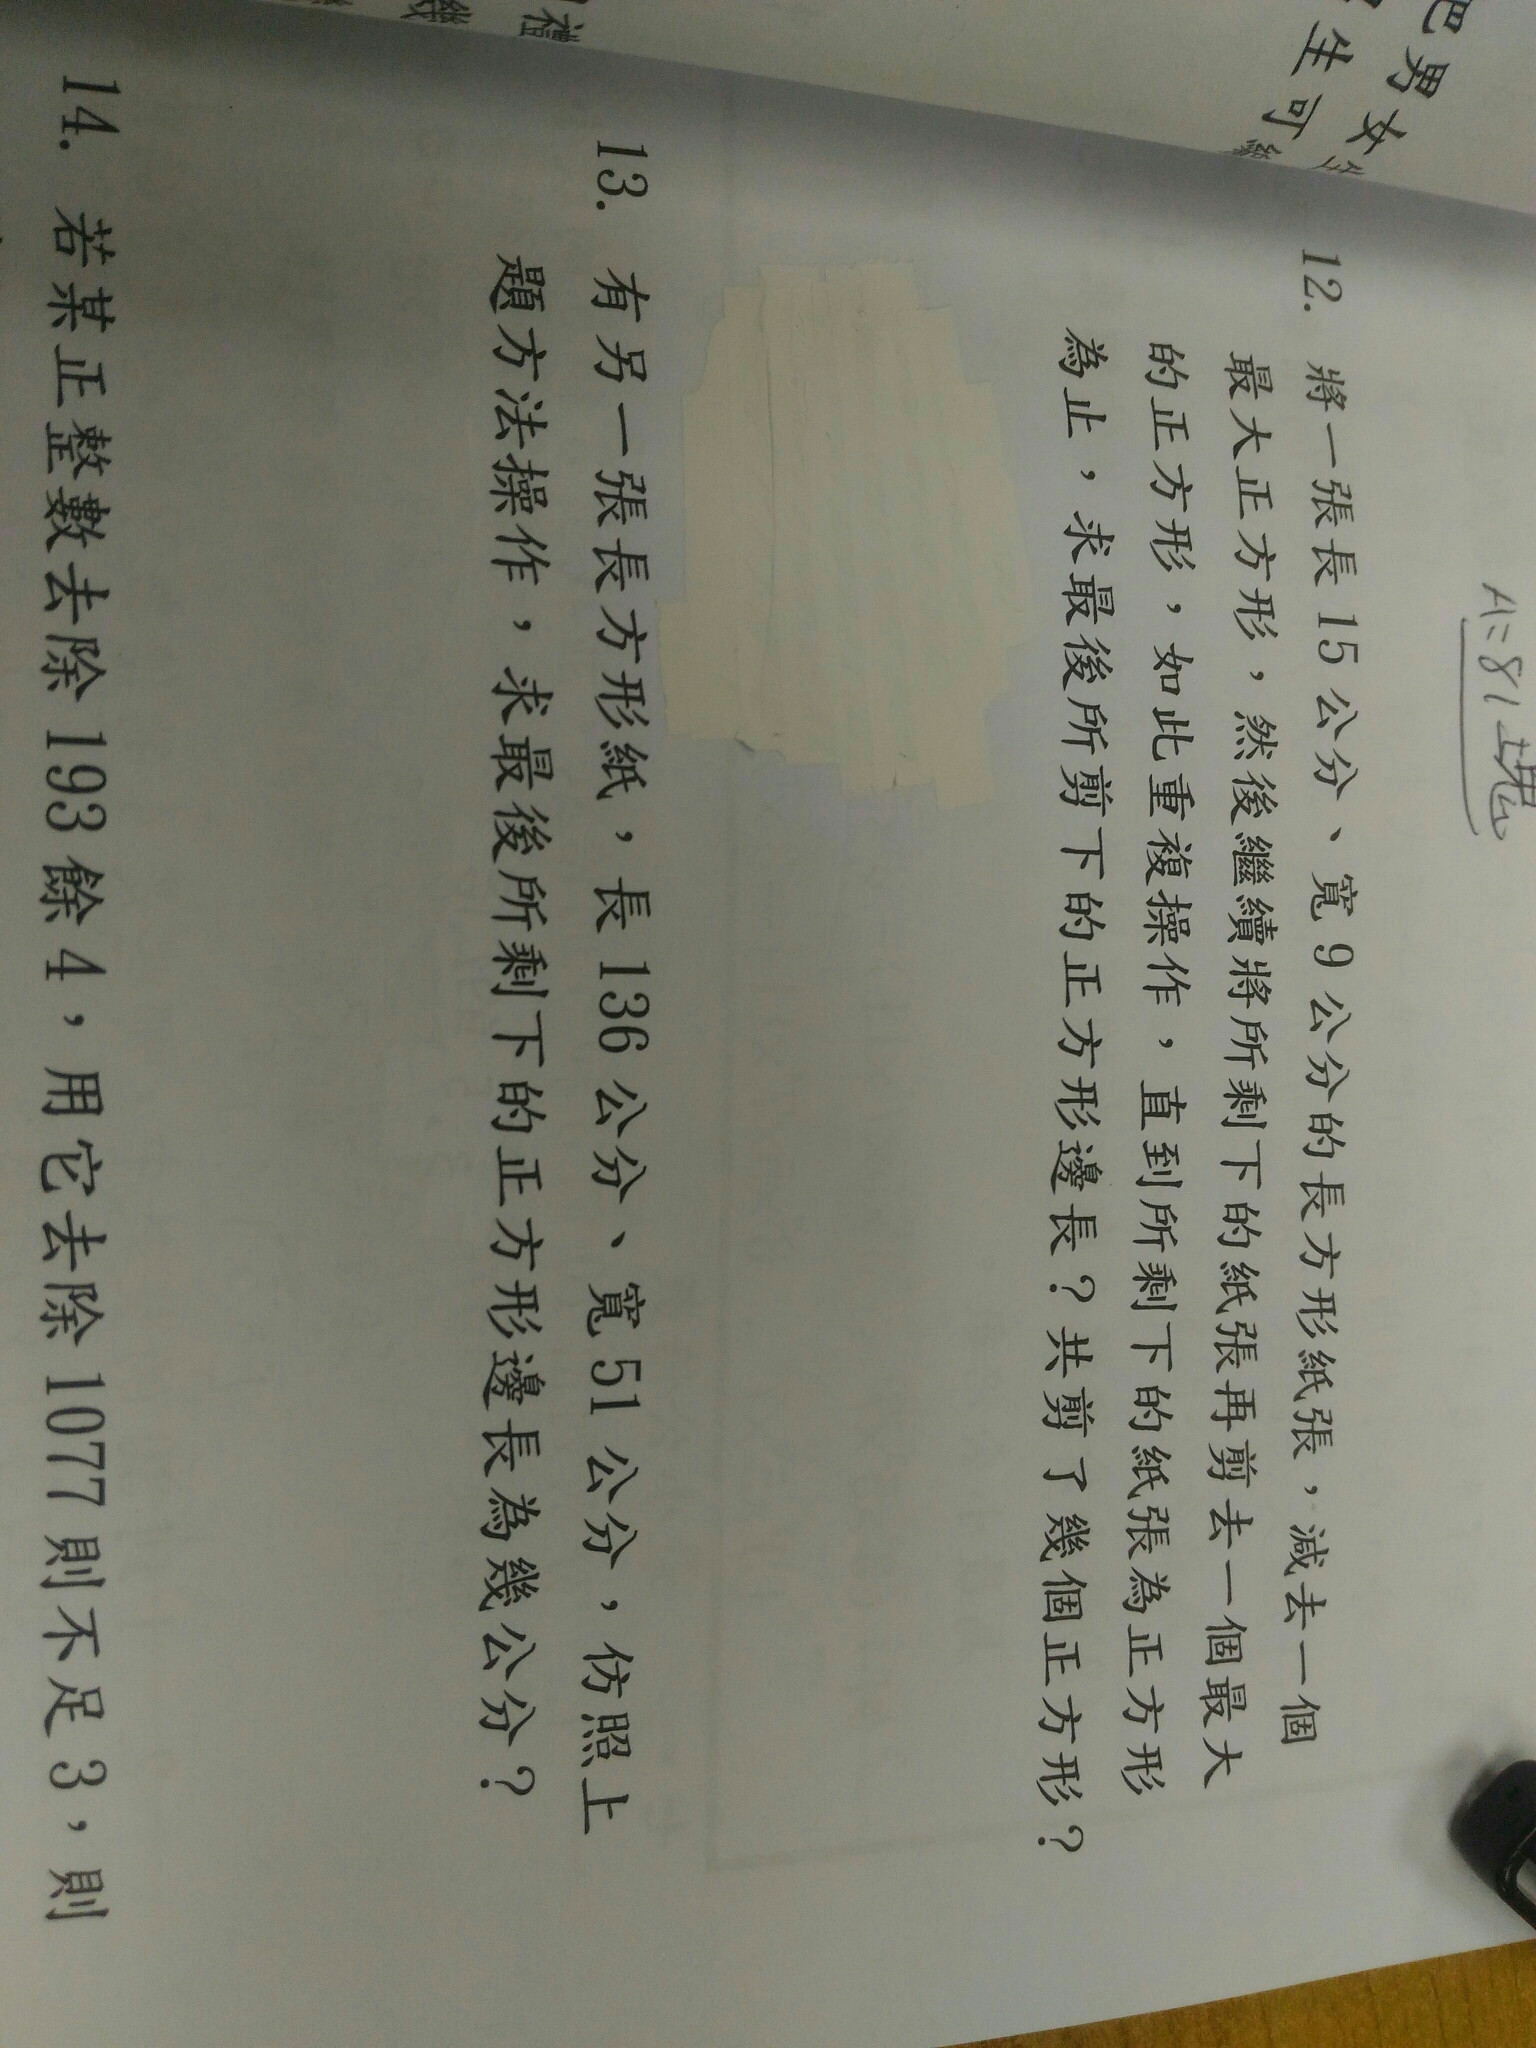 把男女生
生可
A:81塊
12. 將一張長15公分、寬9公分的長方形紙張，減去一個
最大正方形，然後繼續將所剩下的紙張再剪去一個最大
的正方形，如此重複操作，直到所剩下的紙張為正方形
為止，求最後所剪下的正方形邊長？共剪了幾個正方形？
13. 有另一張長方形紙，長136公分、寬51公分，仿照上
題方法操作，求最後所剩下的正方形邊長為幾公分？
14. 若某正整數去除193餘4，用它去除1077則不足3，則